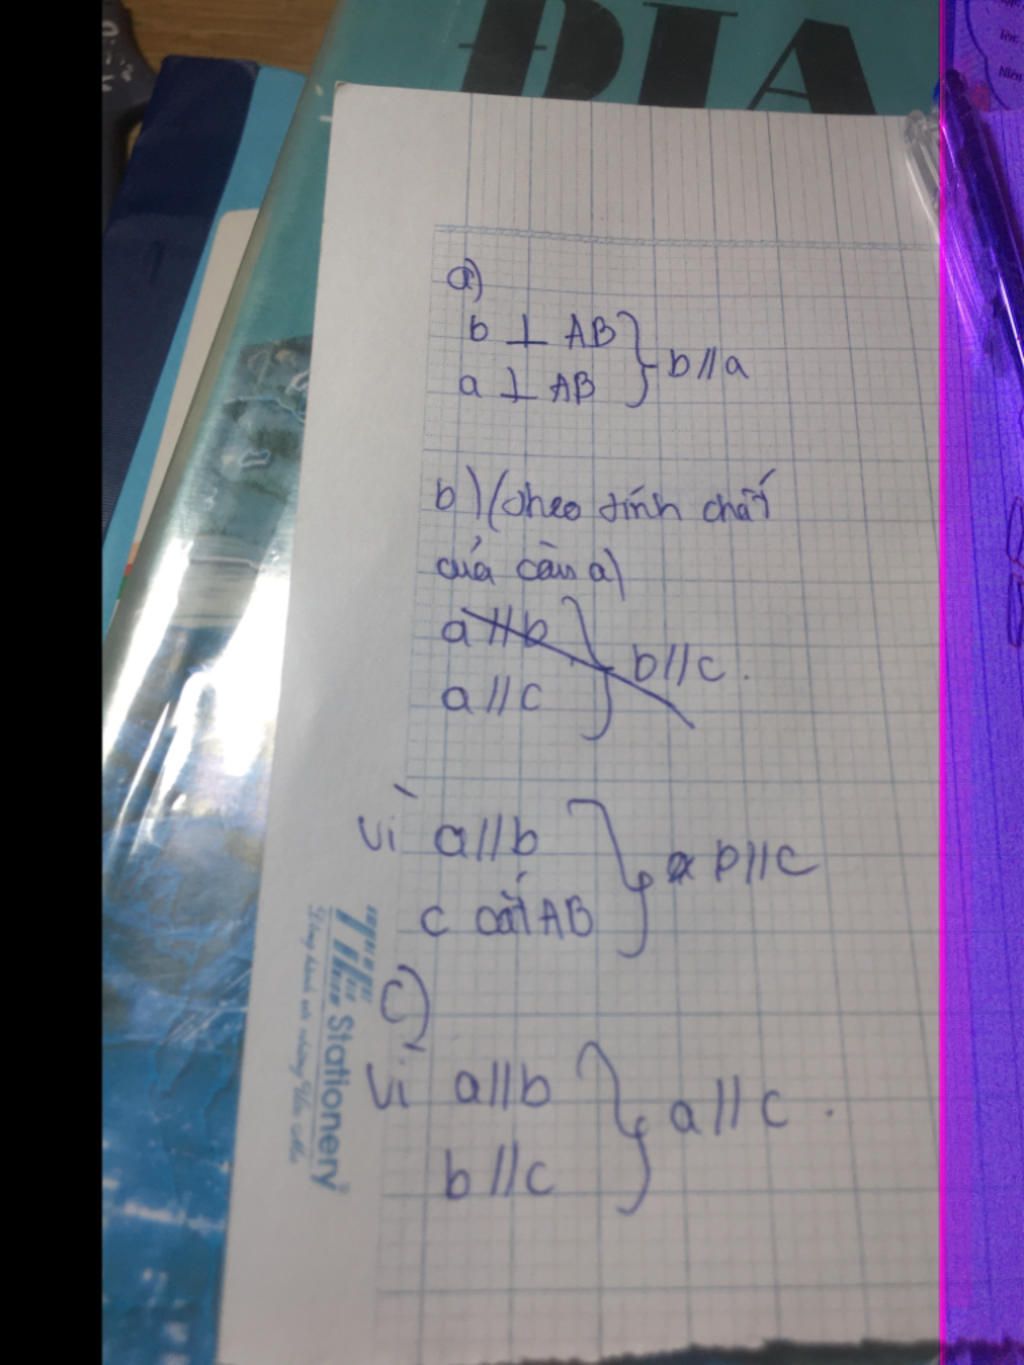 ĐỊA
Tên:
a)
b ⊥ AB
a ⊥ AB
b // a
b) (theo tính chất
của câu a)
a // b
a // c
b // c.
Vì a // b
c cắt AB
b // c
c)
Vì a // b
b // c
a // c.
Stationery